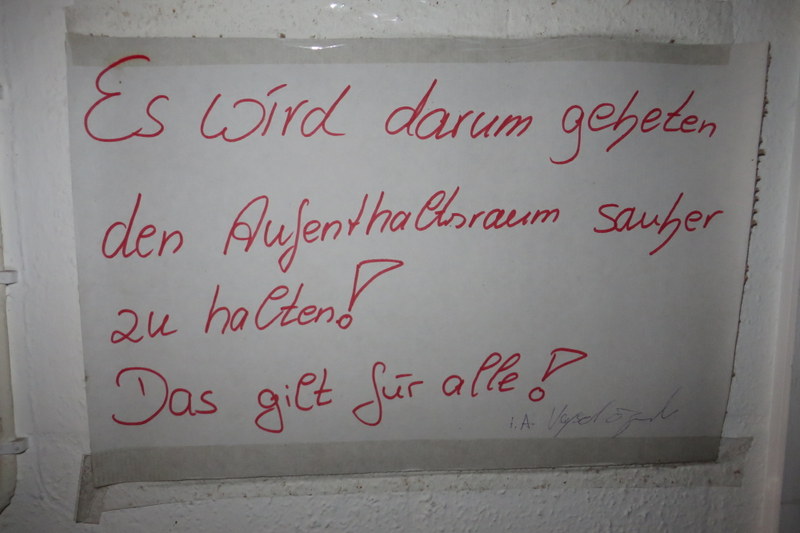 Es wird darum gebeten
den Aufenthaltsraum sauber
zu halten!
Das gilt für alle!
i.A.